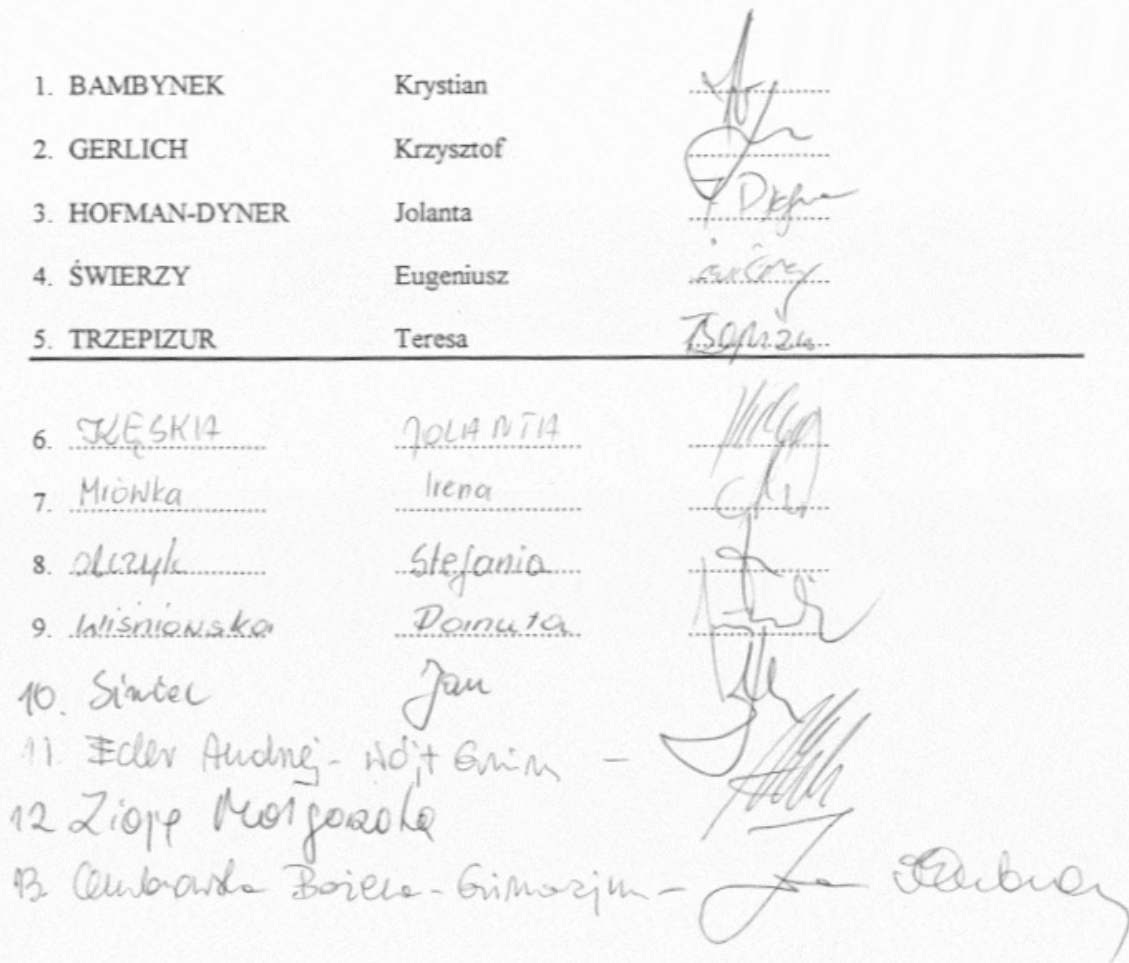 1. BAMBYNEK Krystian
2. GERLICH Krzysztof
3. HOFMAN-DYNER Jolanta
4. ŚWIERZY Eugeniusz
5. TRZEPIZUR Teresa
6. KĘSKA JOLANTA
7. Mrówka Irena
8. Olczyk Stefania
9. Wiśniowska Danuta
10. Siwiec Jan
11. Eder Andrzej - Wójt Gminy -
12 Małgorzata
13. Bożena - Gimnazjum -